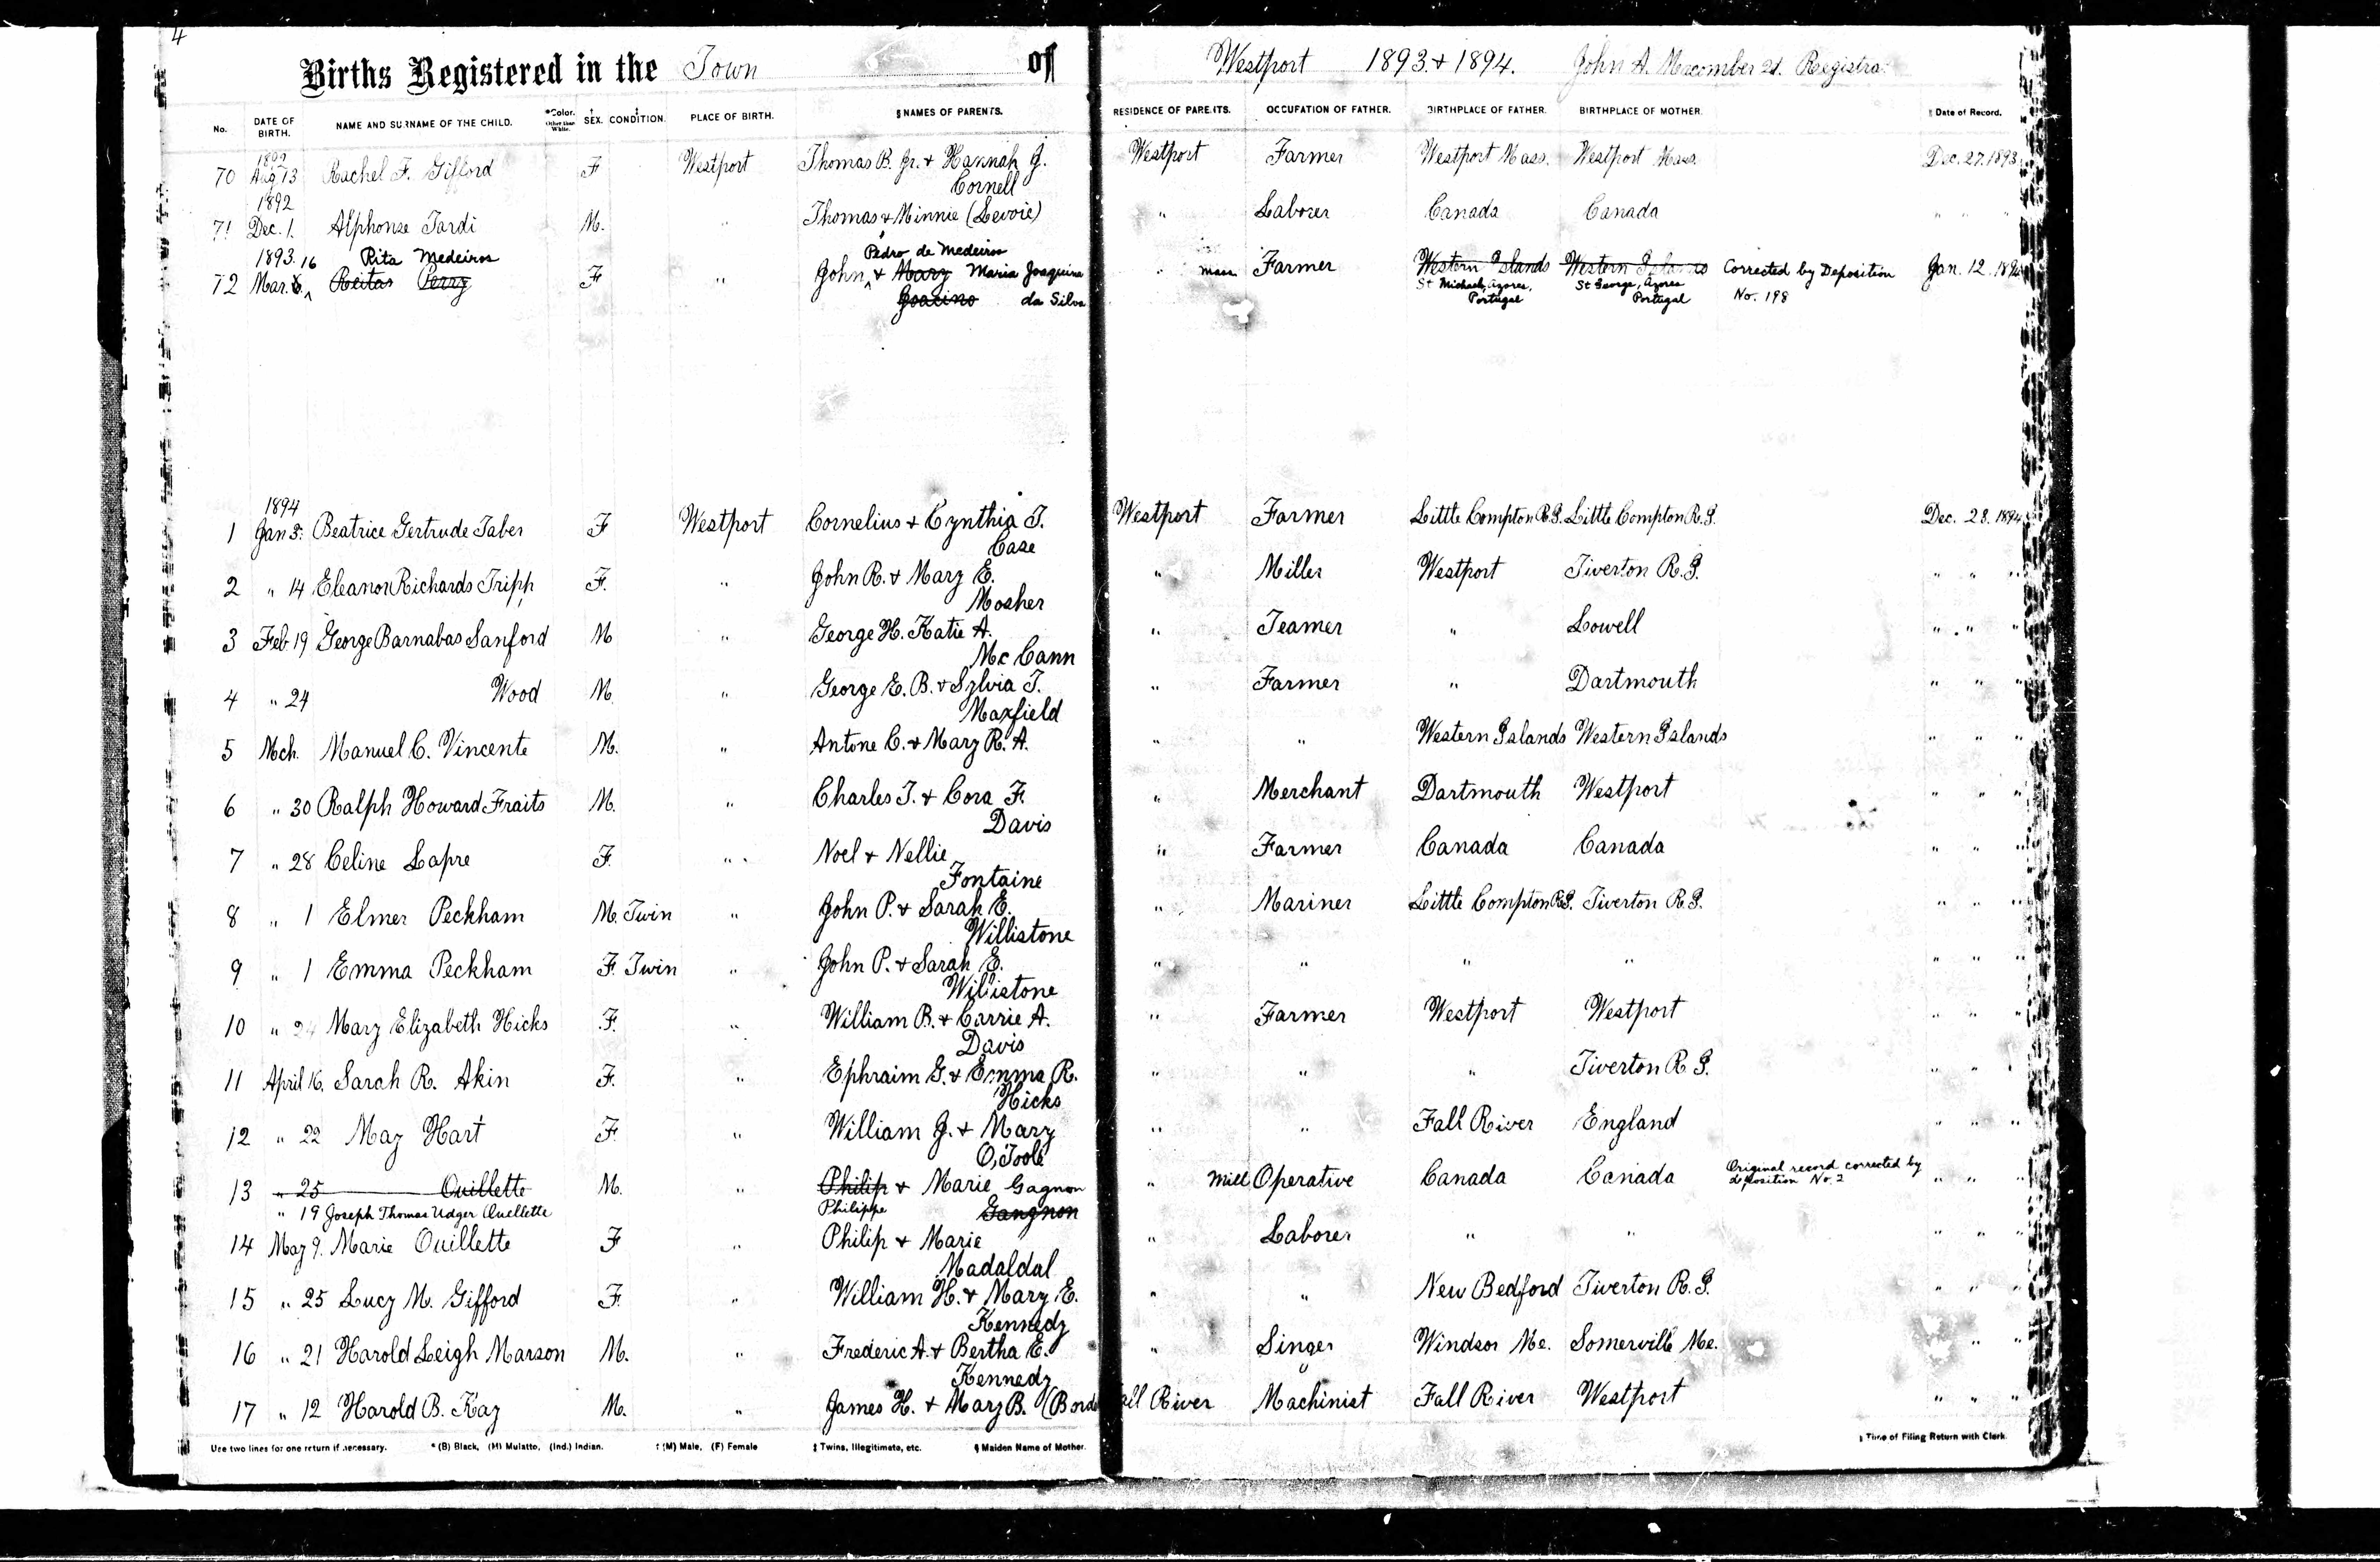 4
Births Registered in the Town of Westport 1893 & 1894. John A. Macomber 2d. Registrar
No. DATE OF BIRTH. NAME AND SURNAME OF THE CHILD. *Color. Other than White. † SEX. ‡ CONDITION. PLACE OF BIRTH. § NAMES OF PARENTS. RESIDENCE OF PARENTS. OCCUPATION OF FATHER. BIRTHPLACE OF FATHER. BIRTHPLACE OF MOTHER. Date of Record.
70 Aug 13 Rachel F. Gifford F Westport Thomas B. Jr. & Hannah J. Westport Farmer Westport Mass. Westport Mass. Dec. 27. 1893
Cornell
1892
71 Dec. 1. Alphonse Tardi M. Thomas & Minnie (Levoie) " Laborer Canada Canada " " "
1893. 16 Rita Medeiros Pedro de Medeiros
72 Mar. Reitas Perry F " John & Mary Maria Joaquina " Mass Farmer Western Islands Western Islands Corrected by Deposition Jan. 12. 1894
Joacino da Silva St Michael, Azores, Portugal St George, Azores Portugal No. 198
1894
1 Jan 3. Beatrice Gertrude Taber F Westport Cornelius & Cynthia T. Westport Farmer Little Compton R.I. Little Compton R.I. Dec. 28. 1894
Case
2 " 14 Eleanor Richards Tripp F. " John R. & Mary E. " Miller Westport Tiverton R.I. " " "
Mosher
3 Feb 19 George Barnabas Sanford M " George H. Katie A. " Teamer " Lowell " " "
Mc Cann
4 " 24 Wood M. " George E. B. & Sylvia T. " Farmer " Dartmouth " " "
Maxfield
5 Mch. Manuel C. Vincente M. " Antone C. & Mary R. A. " " Western Islands Western Islands " " "
6 " 30 Ralph Howard Fraits M. " Charles T. & Cora F. " Merchant Dartmouth Westport " " "
Davis
7 " 28 Celine Lapre F. " Noel & Nellie " Farmer Canada Canada " " "
Fontaine
8 " 1 Elmer Peckham M. Twin " John P. & Sarah E. " Mariner Little Compton R.I. Tiverton R.I. " " "
Willistone
9 " 1 Emma Peckham F. Twin " John P. & Sarah E. " " " " " " "
Willistone
10 " 24 Mary Elizabeth Hicks F. " William B. & Carrie A. " Farmer Westport Westport " " "
Davis
11 April 16. Sarah R. Akin F. " Ephraim G. & Emma R. " " " Tiverton R.I. " " "
Hicks
12 " 22 May Hart F. " William J. & Mary " " Fall River England " " "
O'Toole
13 " 25 Ouillette M. " Philip & Marie Gagnon " Mill Operative Canada Canada Original record corrected by deposition No. 2 " " "
" 19 Joseph Thomas Udger Ouellette Philippe Gangnon
14 May 9. Marie Ouillette F " Philip & Marie " Laborer " " " " "
Madaldal
15 " 25 Lucy M. Gifford F. " William H. & Mary E. " " New Bedford Tiverton R.I. " " "
Kennedy
16 " 21 Harold Leigh Marson M. " Frederic A. & Bertha E. " Singer Windsor Me. Somerville Me. " "
Kennedy
17 " 12 Harold B. Kay M. " James H. & Mary B. (Borde all River Machinist Fall River Westport " " "
Use two lines for one return if necessary. * (B) Black, (M) Mulatto, (Ind.) Indian. † (M) Male, (F) Female ‡ Twins, Illegitimate, etc. § Maiden Name of Mother. Time of Filing Return with Clerk.